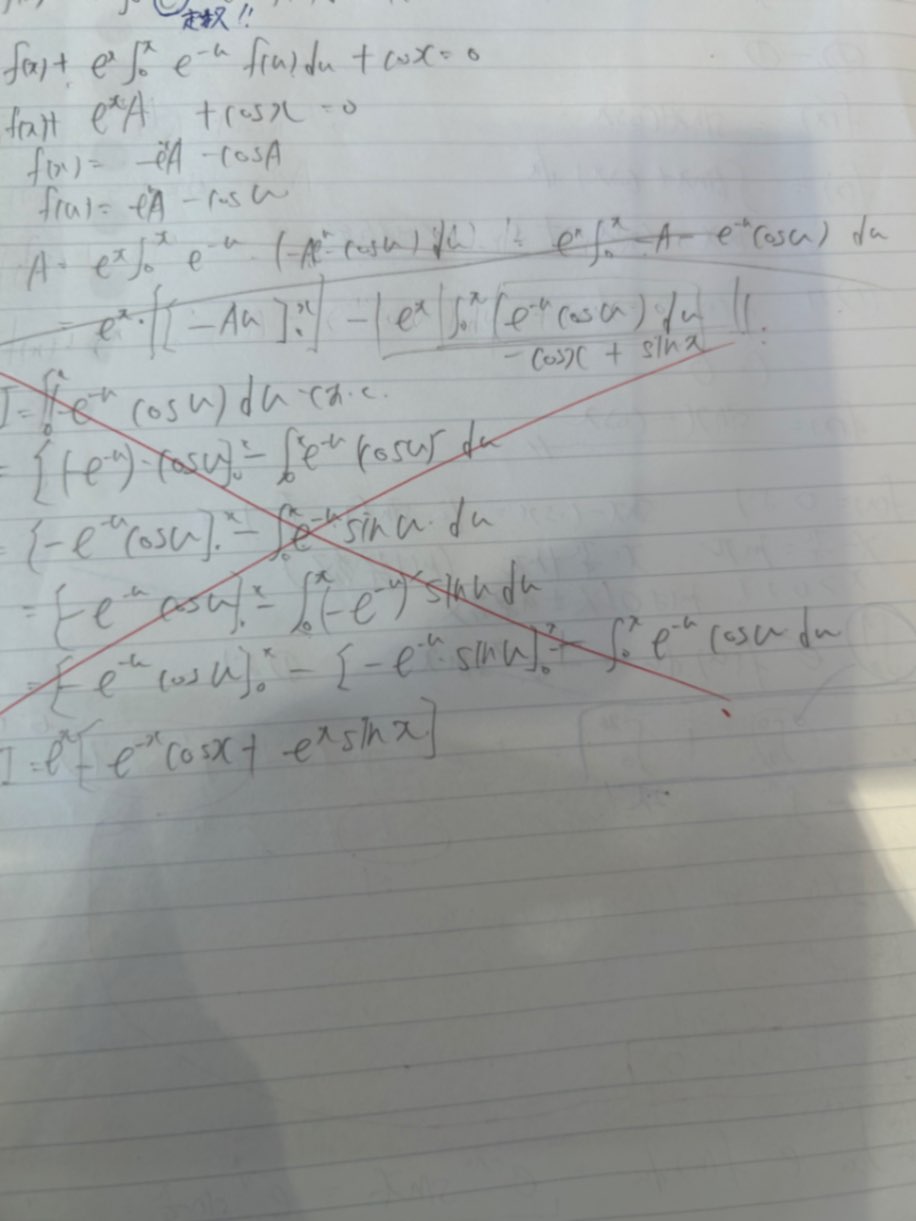 定数!!
f(x) + e^x ∫_0^x e^{-u} f(u) du + cos x = 0
f(x) + e^x A + cos x = 0
f(x) = -e^x A - cos A
f(u) = -e^u A - cos u
A = e^x ∫_0^x e^{-u} (-Ae^u - cos u) du = e^x ∫_0^x -A - e^{-u} cos u) du
= e^x · {[-Au]_0^x} - | e^x | ∫_0^x (e^{-u} cos u) du
- cos x + sin x
I = ∫_0^x e^{-u} (cos u) du
= [(-e^{-u}) · cos u]_0^x - ∫_0^x e^{-u} (cos u)' du
= [-e^{-u} cos u]_0^x - ∫_0^x e^{-u} sin u · du
= [-e^{-u} cos u]_0^x - ∫_0^x (-e^{-u})' sin u du
= [-e^{-u} cos u]_0^x - [-e^{-u} · sin u]_0^x + ∫_0^x e^{-u} cos u du
I = e^x [- e^{-x} cos x + -e^x sin x]